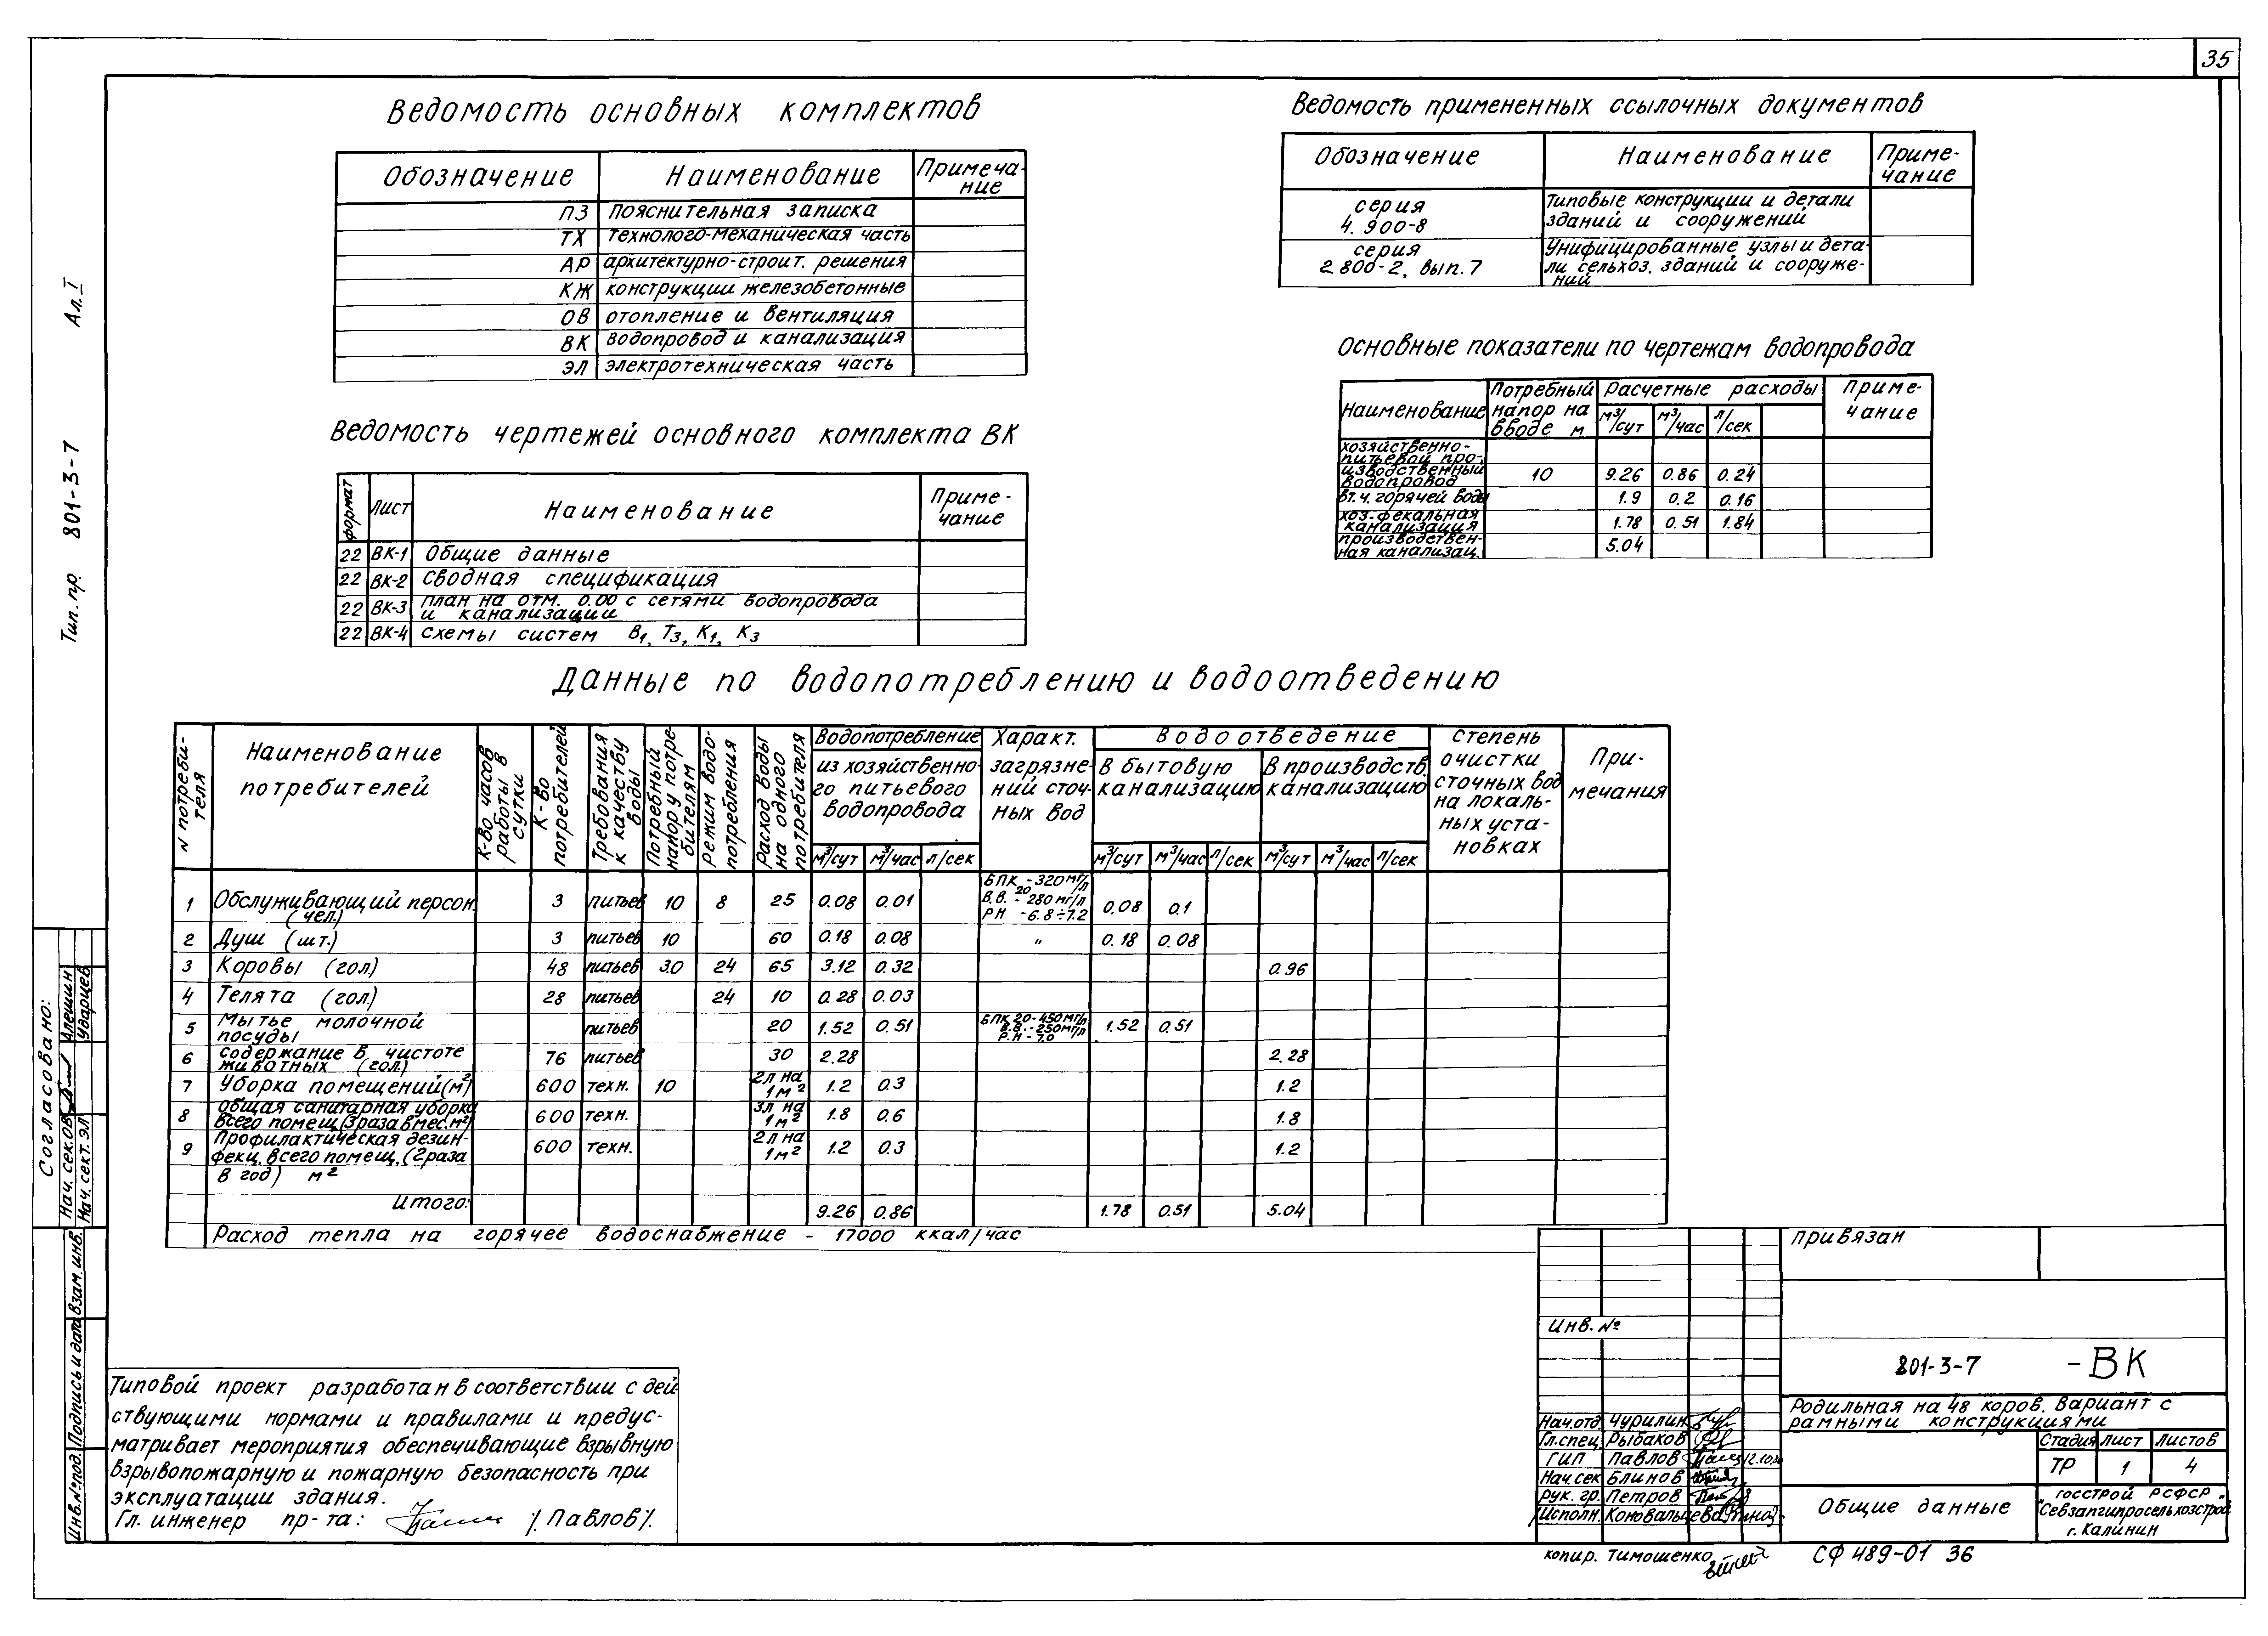 35
Ведомость основных комплектов
Обозначение Наименование Примеча-
ние
ПЗ пояснительная записка
ТХ технолого-механическая часть
АР архитектурно-строит. решения
КЖ конструкции железобетонные
ОВ отопление и вентиляция
ВК водопровод и канализация
ЭЛ электротехническая часть
Ведомость примененных ссылочных документов
Обозначение Наименование Приме-
чание
серия
4.900-8
типовые конструкции и детали
зданий и сооружений
серия
2.800-2, вып.7
Унифицированные узлы и дета-
ли сельхоз. зданий и сооруже-
ний
Основные показатели по чертежам водопровода
Наименование
Потребный
напор на
вводе м
Расчетные расходы
м³/сут м³/час л/сек
Приме-
чание
хозяйственно-
питьевой про-
изводственный
водопровод 10 9.26 0.86 0.24
вт.ч. горячей воды 1.9 0.2 0.16
хоз-фекальная
канализация 1.78 0.51 1.84
производствен-
ная канализац. 5.04
Ведомость чертежей основного комплекта ВК
формат Лист Наименование Приме-
чание
22 ВК-1 Общие данные
22 ВК-2 Сводная спецификация
22 ВК-3 план на отм. 0.00 с сетями водопровода
и канализации
22 ВК-4 схемы систем В1, Т3, К1, К3
Данные по водопотреблению и водоотведению
N потреби-
теля
Наименование
потребителей
К-во часов
работы в
сутки
К-во
потребителей
Требования
к качеству
воды
Потребный
напор у потре-
бителям
режим водо-
потребления
Расход воды
на одного
потребителя
Водопотребление
из хозяйственно-
го питьевого
водопровода
м³/сут м³/час л/сек
Характ.
загрязне-
ний сточ-
ных вод
Водоотведение
В бытовую
канализацию
м³/сут м³/час л/сек
В производств.
канализацию
м³/сут м³/час л/сек
степень
очистки
сточных вод
на локаль-
ных уста-
новках
При-
мечания
1 Обслуживающий персон.
(чел.) 3 питьев 10 8 25 0.08 0.01
БПК20 - 320 мг/л
В.В. - 280 мг/л
РН - 6.8÷7.2
0.08 0.1
2 Душ (шт.) 3 питьев 10 60 0.18 0.08 " 0.18 0.08
3 Коровы (гол) 48 питьев 3.0 24 65 3.12 0.32 0.96
4 Телята (гол.) 28 питьев 24 10 0.28 0.03
5 Мытье молочной
посуды питьев 20 1.52 0.51
БПК 20-450 мг/л
В.В. - 250 мг/л
Р.Н - 7.0
1.52 0.51
6 содержание в чистоте
животных (гол.) 76 питьев 30 2.28 2.28
7 Уборка помещений (м²) 600 техн. 10 2л на
1м² 1.2 0.3 1.2
8 общая санитарная уборка
всего помещ. (3 раза в мес. м²) 600 техн. 3л на
1м² 1.8 0.6 1.8
9 Профилактическая дезин-
фекц. всего помещ. (2 раза
в год) м² 600 техн. 2л на
1м² 1.2 0.3 1.2
Итого: 9.26 0.86 1.78 0.51 5.04
Расход тепла на горячее водоснабжение - 17000 ккал/час
Типовой проект разработан в соответствии с дей
ствующими нормами и правилами и предус-
матривает мероприятия обеспечивающие взрывную
взрывопожарную и пожарную безопасность при
эксплуатации здания.
Гл. инженер пр-та: /Павлов/.
Ал. I
Тип. пр. 801-3-7
Согласовано:
Нач. сек. ОВ Алешин
Нач. сект. ЭЛ Ударцев
Взам. инв.
Подпись и дата
Инв.№под.
привязан
Инв. №
801-3-7 -ВК
Родильная на 48 коров. Вариант с
рамными конструкциями
Нач.отд. Чурилин
Гл.спец. Рыбаков
ГИП Павлов
Нач.сек Блинов
рук. гр. Петров
Исполн. Коновальцева
Стадия Лист Листов
ТР 1 4
Общие данные
госстрой РСФСР
"Севзапгипросельхозстрой"
г. Калинин
копир. Тимошенко
СФ 489-01 36